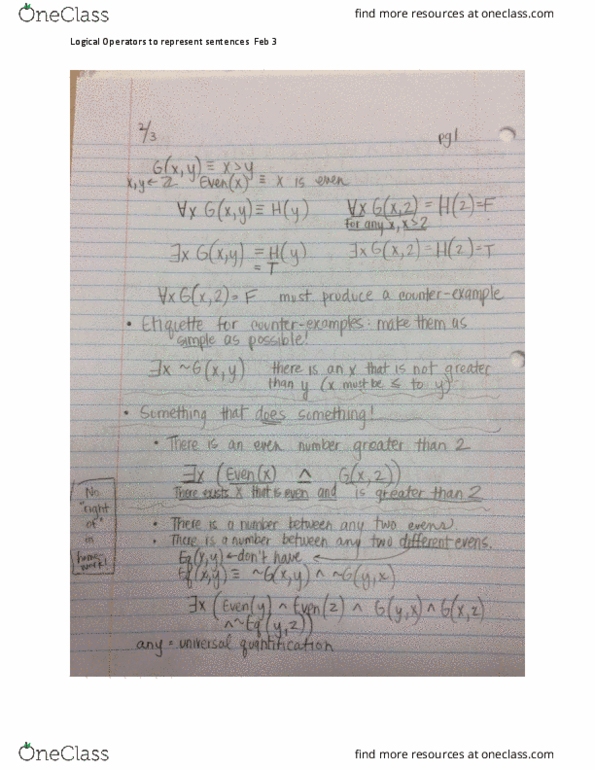 OneClass
find more resources at oneclass.com
Logical Operators to represent sentences Feb 3
2/3
pg1
G(x,y) ≡ x>y
x,y ← ℤ Even(x) ≡ x is even
∀x G(x,y) ≡ H(y) ∀x G(x,2) = H(2)=F
for any x, x>2
∃x G(x,y) = H(y) ∃x G(x,2) = H(2)=T
= T
∀x G(x,2) = F must produce a counter-example
• Etiquette for counter-examples: make them as
simple as possible!
∃x ~G(x,y) there is an x that is not greater
than y (x must be ≤ to y)
• Something that does something!
• There is an even number greater than 2
∃x (Even(x) ∧ G(x,2))
There exists x that is even and is greater than 2
No
"right
of"
in
home-
work!
• There is a number between any two evens.
• There is a number between any two different evens.
Eq(x,y) ← don't have
Eq(x,y) ≡ ~G(x,y) ∧ ~G(y,x)
∃x (Even(y) ∧ Even(z) ∧ G(y,x) ∧ G(x,z)
∧ ~Eq(y,z))
any = universal quantification
OneClass
find more resources at oneclass.com